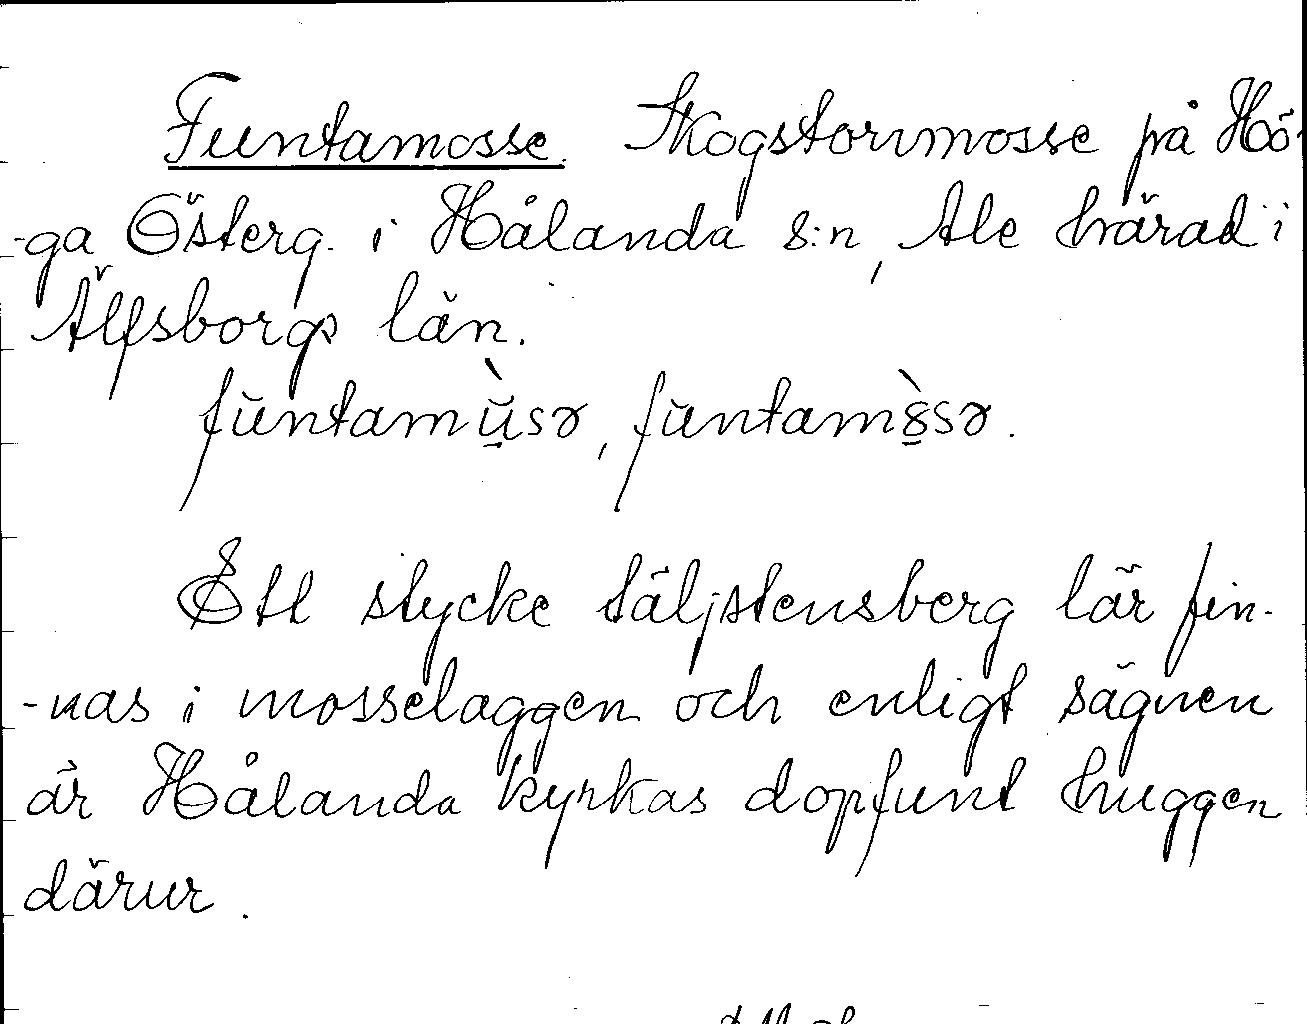 Funtamosse. Skogstorvmosse på Hö-
-ga Österg. i Hålanda s:n, Ale härad i
Älfsborgs län.
fŭntamŭ̠̀sə, fŭntam8̠̀sə.
Ett stycke täljstensberg lär fin-
-nas i mosselaggen och enligt sägnen
är Hålanda kyrkas dopfunt huggen
därur.